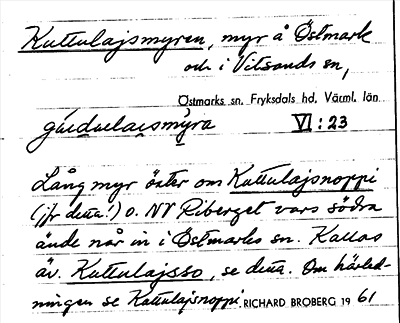 Kuttulajsmyren, myr å Östmark
och i Vitsands sn,
Östmarks sn. Fryksdals hd. Värml. län
VI : 23
Lång myr öster om Kuttulajsnoppi
(jfr detta!) o. NV Riberget vars södra
ände når in i Östmarks sn. Kallas
äv. Kuttulajsso, se detta. Om härled-
ningen se Kuttulajsnoppi. RICHARD BROBERG 19 61